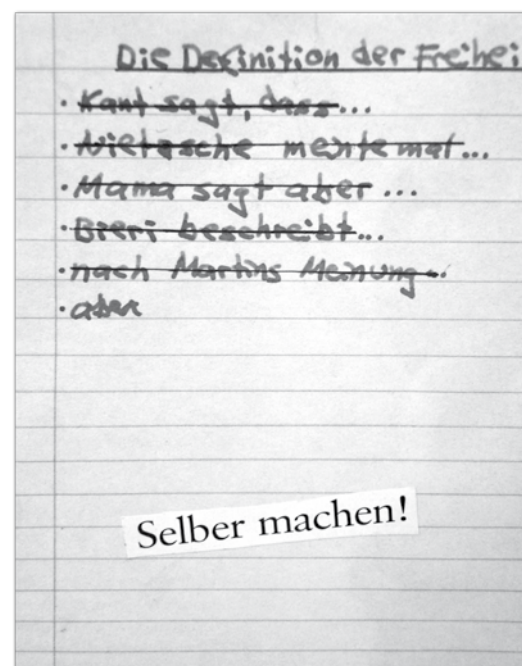 Die Definition der Freihei
· Kant sagt, dass...
· Nietzsche meinte mal...
· Mama sagt aber ...
· Bieri beschreibt...
· nach Martins Meinung...
· aber
Selber machen!